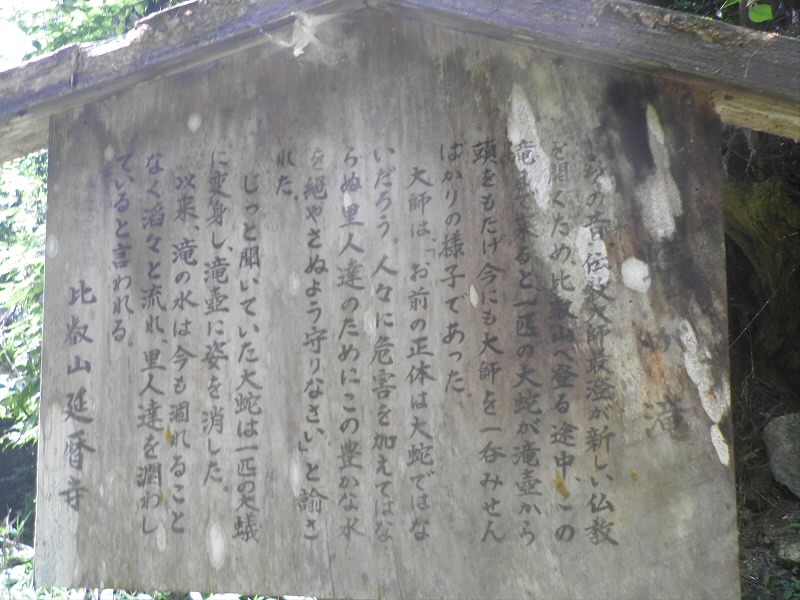 滝
の昔、伝教大師最澄が新しい仏教
を開くため、比叡山へ登る途中、この
滝まで来ると一匹の大蛇が滝壺から
頭をもたげ今にも大師を一呑みせん
ばかりの様子であった。
大師は、「お前の正体は大蛇ではな
いだろう。人々に危害を加えてはな
らぬ里人達のためにこの豊かな水
を絶やさぬよう守りなさい」と諭さ
れた。
じっと聞いていた大蛇は一匹の大蟻
に変身し、滝壺に姿を消した。
以来、滝の水は今も涸れること
なく滔々と流れ、里人達を潤わし
ていると言われる。
比叡山延暦寺